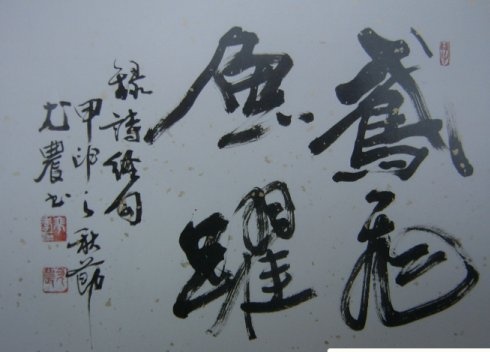 鳶飛
魚躍
錄詩經句
甲申之秋節
尤農书